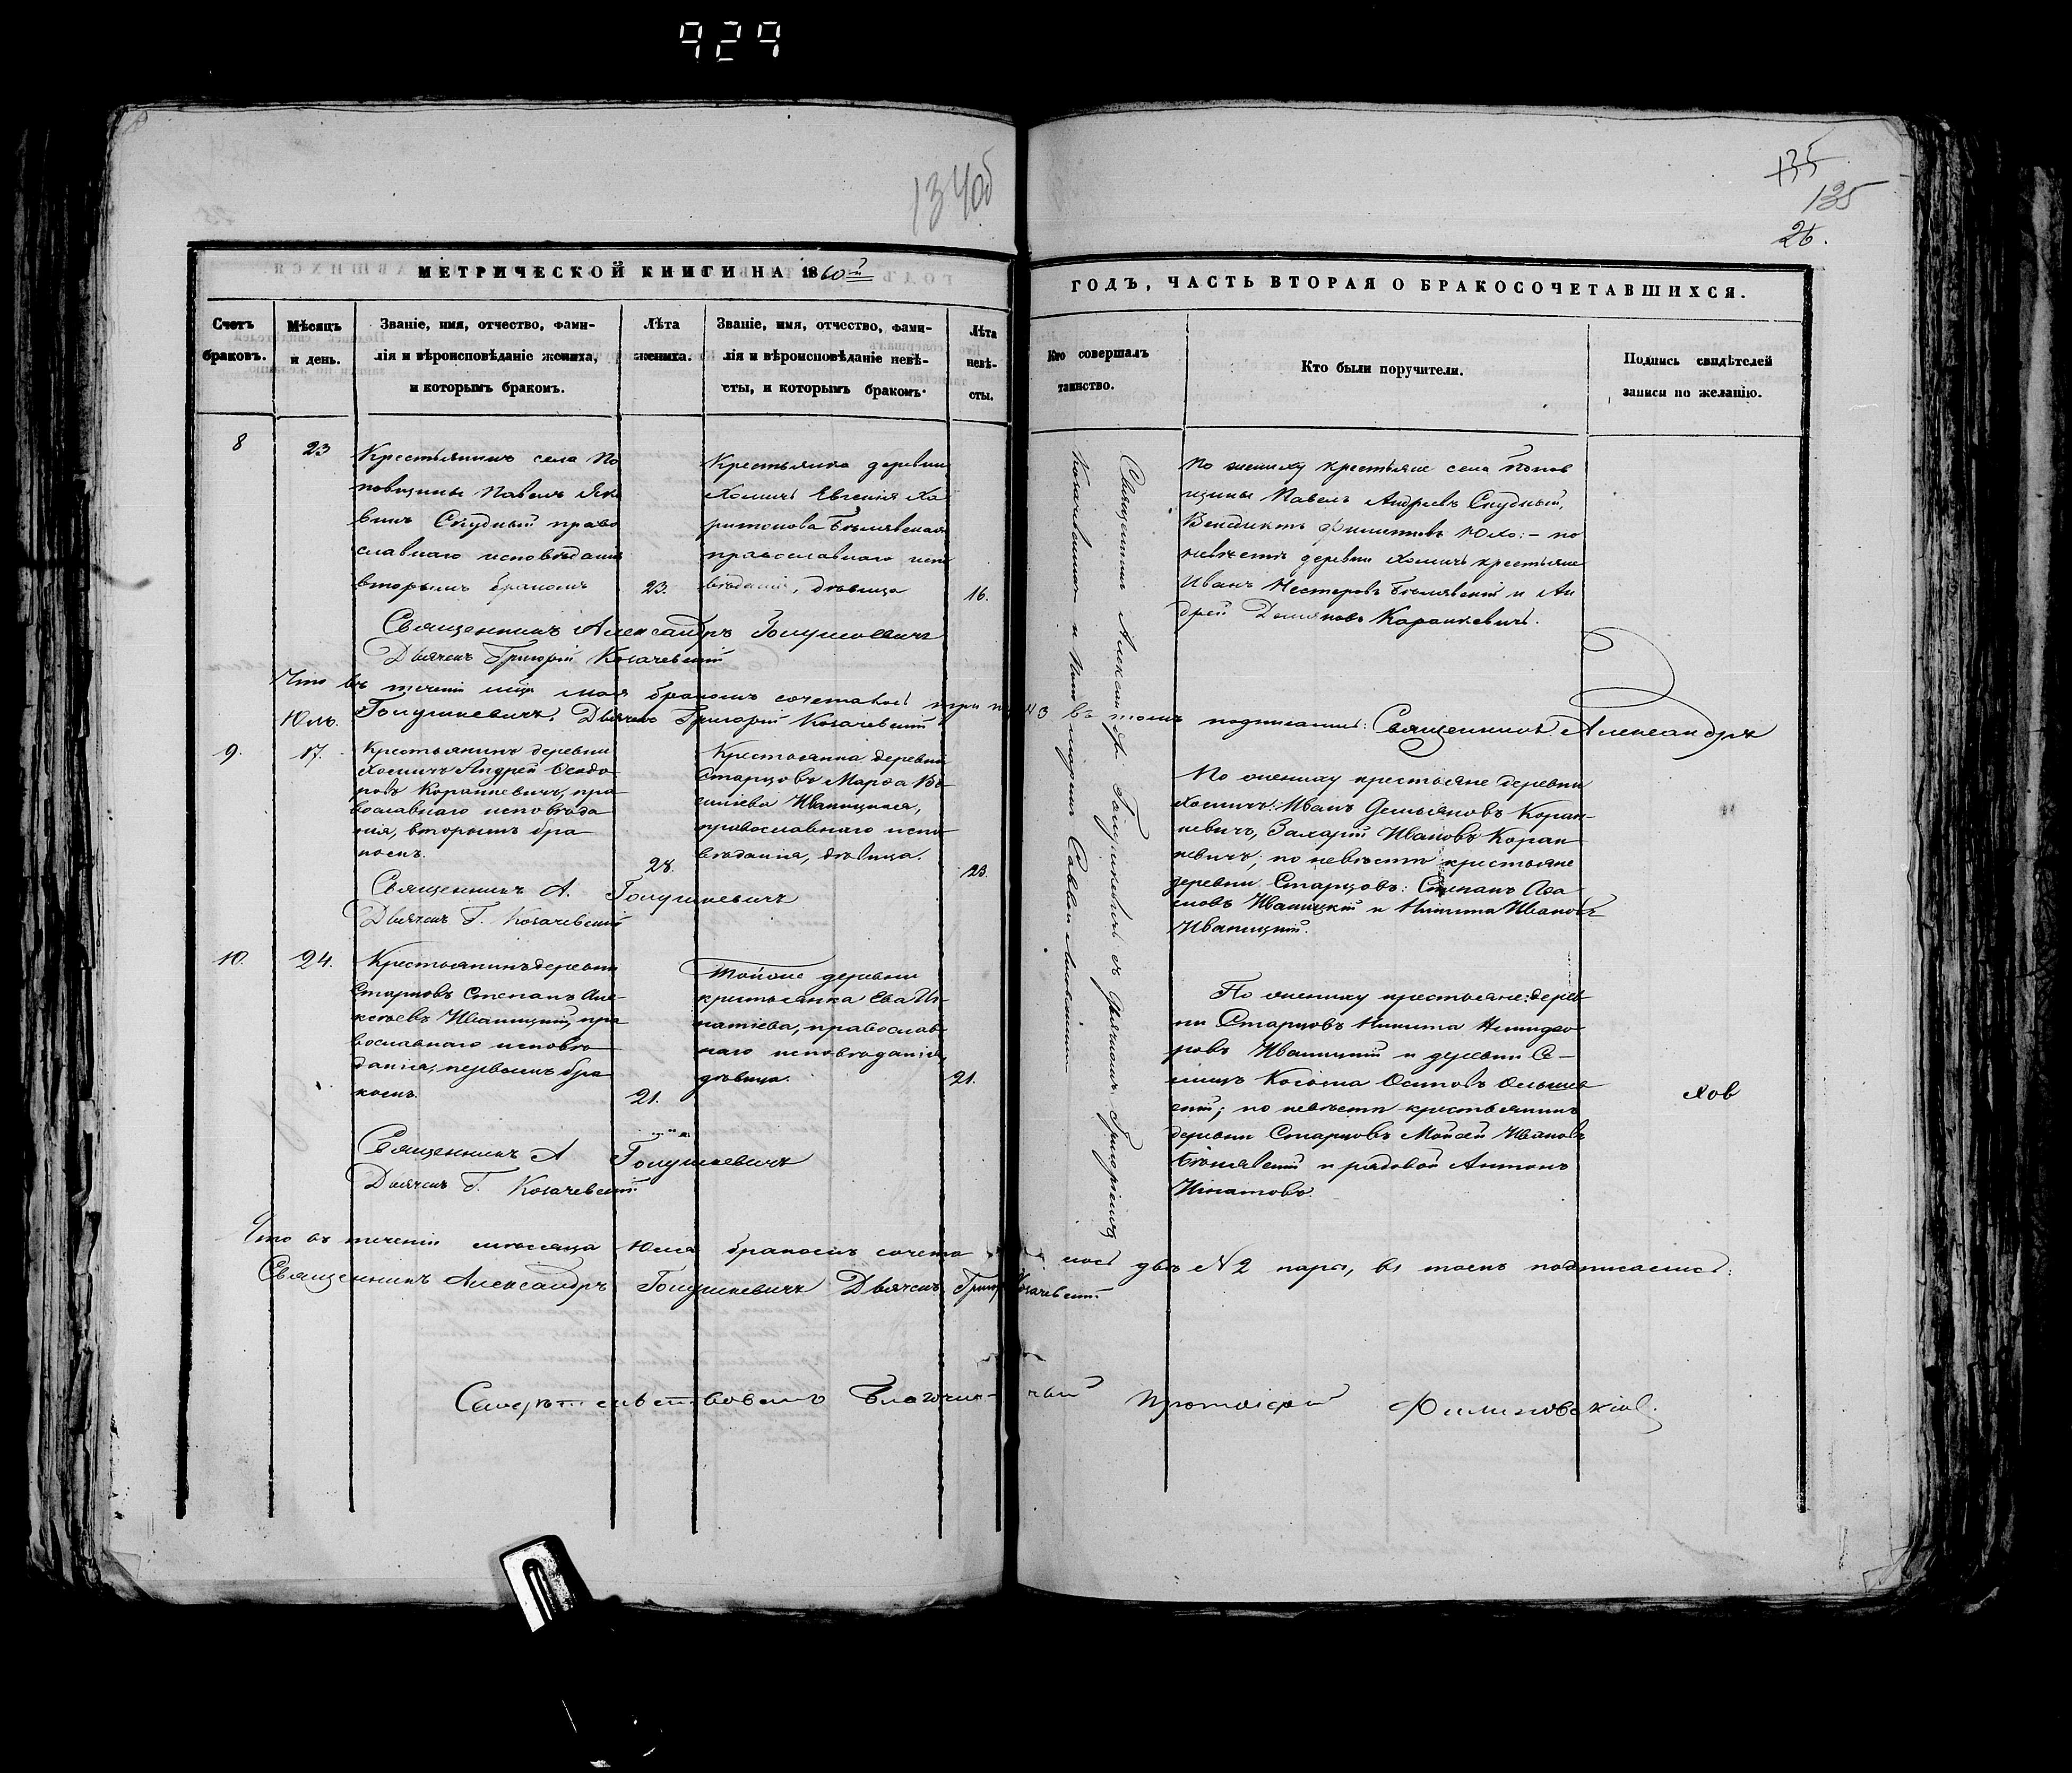 929
134об
135
135
26.
МЕТРИЧЕСКОЙ КНИГИ НА 1860й
ГОДЪ, ЧАСТЬ ВТОРАЯ О БРАКОСОЧЕТАВШИХСЯ.
Счетъ
браковъ.
Мѣсяцъ
и день.
Званіе, имя, отчество, фами-
лія и вѣроисповѣданіе жениха,
и которымъ бракомъ.
Лѣта
жениха.
Званіе, имя, отчество, фами-
лія и вѣроисповѣданіе невѣ-
сты, и которымъ бракомъ.
Лѣта
невѣ-
сты.
Кто совершалъ
таинство.
Кто были поручители.
Подпись свидѣтелей
записи по желанію.
8
23
Крестьянинъ села По
повщины Павелъ
Скудный право
славнаго исповѣданія
вторымъ бракомъ
23.
Крестьянка деревни
Хомичъ Евгенія Ха
ритонова Бѣлявская
православнаго испо
вѣданія, дѣвица
16.
Священникъ Александръ Голушкевичъ
Дьячекъ Григорій Козачевскій
По жениху крестьяне села Попов
щины Павелъ Андреевъ Скудный,
Венедиктъ Филиповъ Юхо: – по
невѣстѣ деревни Хомичъ крестьяне
Иванъ Нестеровъ Бѣлявскій и Ан
дрей Демяновъ Каранкевичъ.
Священникъ Александръ Голушкевичъ съ дьячкомъ Григоріемъ
Козачевскимъ и пономаремъ Саввою
Что въ теченіи мая бракомъ сочетались три №3 въ томъ подписались: Священникъ Александръ
Голушкевичъ. Дьячекъ Григорій Козачевскій
Юль.
9.
17.
Крестьянинъ деревни
Хомичъ Андрей Ѳеодо-
ровъ Коранкевичъ, пра
вославнаго исповѣда
нія, вторымъ бра
комъ.
28.
Крестьянка деревни
Старцовъ Марѳа Ва
силіева Иваницкая,
православнаго испо-
вѣданія, дѣвица.
23.
Священникъ А. Голушкевичъ
Дьячекъ Г. Козачевскій
По жениху крестьяне деревни
Хомичъ: Иванъ Демьяновъ Коран-
кевичъ, Захарій Ивановъ Коран
кевичъ; по невѣстѣ крестьяне
деревни Старцовъ: Степанъ
Иваницкій и Никита Ивановъ
Иваницкій.
10.
24.
Крестьянинъ деревни
Старцовъ Степанъ Але-
ксѣевъ Иваницкій, пра
вославнаго исповѣ
данія, первымъ бра
комъ.
21.
Тойже деревни
крестьянка Ева Иг-
натіева, православ-
наго исповѣданія,
дѣвица.
21.
Священникъ А Голушкевичъ
Дьячекъ Г. Козачевскій
По жениху крестьяне: дерев-
ни Старцовъ Никита Никифо-
ровъ Иваницкій и деревни
Козьма Осиповъ
по невѣстѣ крестьянинъ
деревни Старцовъ Моисей Ивановъ
Бѣлявскій и рядовой Антонъ
Игнатовъ.
Хов
Что въ теченіи мѣсяца Юля бракомъ сочета лось двѣ №2 пары, въ томъ подписались:
Священникъ Александръ Голушкевичъ Дьячекъ Григорій Козачевскій
Свидѣтельствовалъ Благочин- ный Протоіерей Филиповскій.